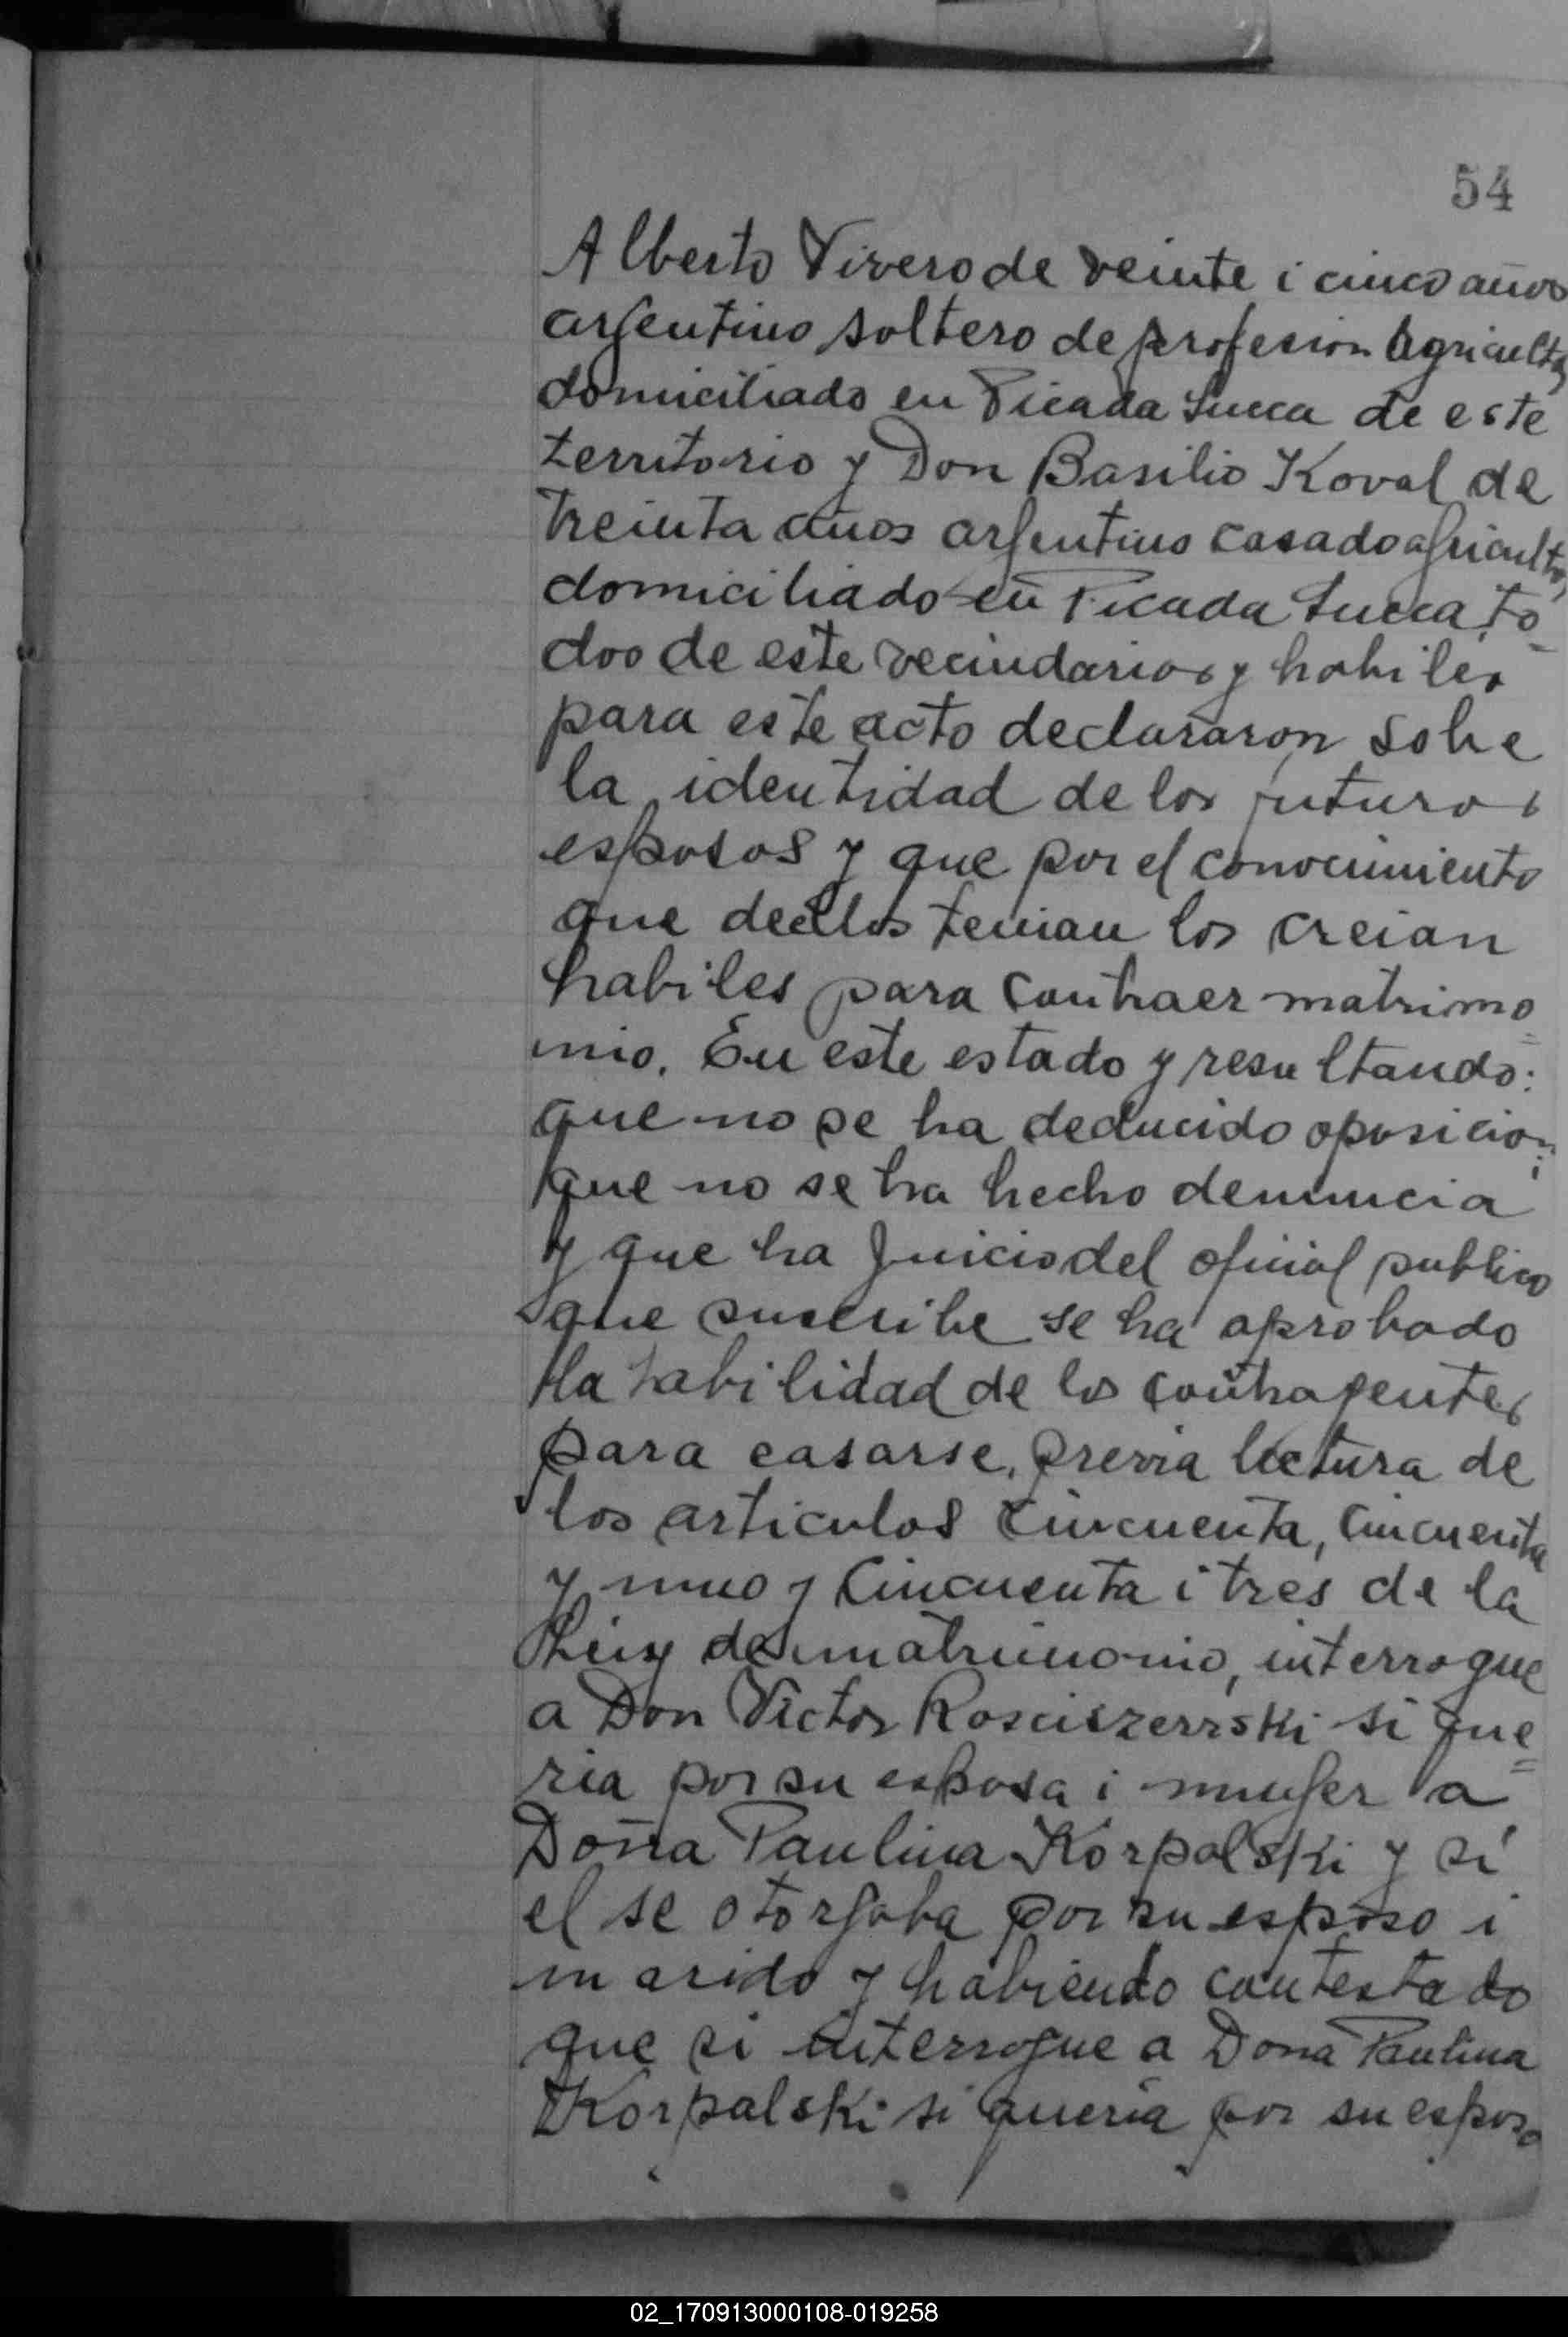 54
Alberto Vivero de veinte i cinco años
argentino soltero de profesion Agricultor
domiciliado en Picada Sueca de este
territorio y Don Basilio Koval de
treinta años argentino casado agricultor
domiciliado en Picada Sueca, to
dos de este vecindario y habiles
para este acto declararon sobre
la identidad de los futuros
esposos y que por el conocimiento
que de ellos tenian los creian
habiles para contraer matrimo=
nio. En este estado y resultando:
que no se ha deducido oposicion;
que no se ha hecho denuncia
y que ha juicio del oficial publico
que suscribe se ha aprobado
la habilidad de los contrayentes
para casarse, previa lectura de
los articulos cincuenta, cincuenta
y uno y cincuenta i tres de la
Ley de matrimonio, interrogue
a Don Victor Rosciszerrski si que=
ria por su esposa i mujer a
Doña Paulina Korpalski y si
el se otorgaba por su esposo i
marido y habiendo contestado
que si interrogue a Dona Paulina
Korpalski si queria por su esposo
02_170913000108-019258